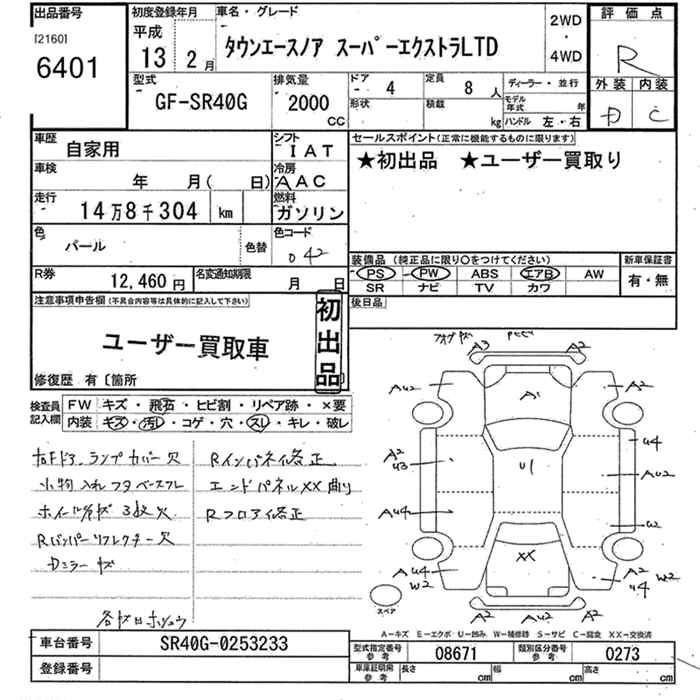 出品番号
[2160]
6401
初度登録年月
平成
13 2月
車名・グレード
タウンエースノア スーパーエクストラLTD
2WD
・
4WD
評価点
R
外装 内装
D C
型式
GF-SR40G
排気量
2000
CC
ドア - 4
形状
定員 8 人
積載 kg
ディーラー・並行
モデル年式 年
ハンドル 左・右
車歴 自家用
シフト IAT
車検 年 月( 日)
冷房 AAC
走行 14万8千304 km
燃料 ガソリン
色 パール 色替
色コード 042
R券 12,460円
名変通知期限 月 日
セールスポイント(正常に機能するものに限ります)
★初出品 ★ユーザー買取り
装備品(純正品に限り○をつけてください)
PS PW ABS エアB AW
SR ナビ TV カワ
新車保証書
有・無
後日品
注意事項申告欄(不具合内容等は具体的に記入して下さい)
ユーザー買取車
初出品
修復歴 有〔箇所
検査員記入欄
FW キズ・飛石・ヒビ割・リペア跡・×要
内装 キズ・汚レ・コゲ・穴・スレ・キレ・破レ
ランプカバー欠
小物入れフタ
ホイール 3枚欠
Rバンパーリフレクター欠
Dミラーキズ
Rインパネ修正
エンドパネルXX曲り
Rフロア修正
A3 A2
AU2 A1 A2
A2 U3 U1 U4
AU2
AU4 U2
AU4 W2 XX A2 U4 W2
スペア
A2 AU2 A2
A-キズ E-エクボ U-凹み W-補修跡 S-サビ C-腐食 XX-交換済
車台番号 SR40G-0253233
登録番号
型式指定番号 参考 08671
類別区分番号 参考 0273
車庫証明用 参考 長さ cm 幅 cm 高さ cm